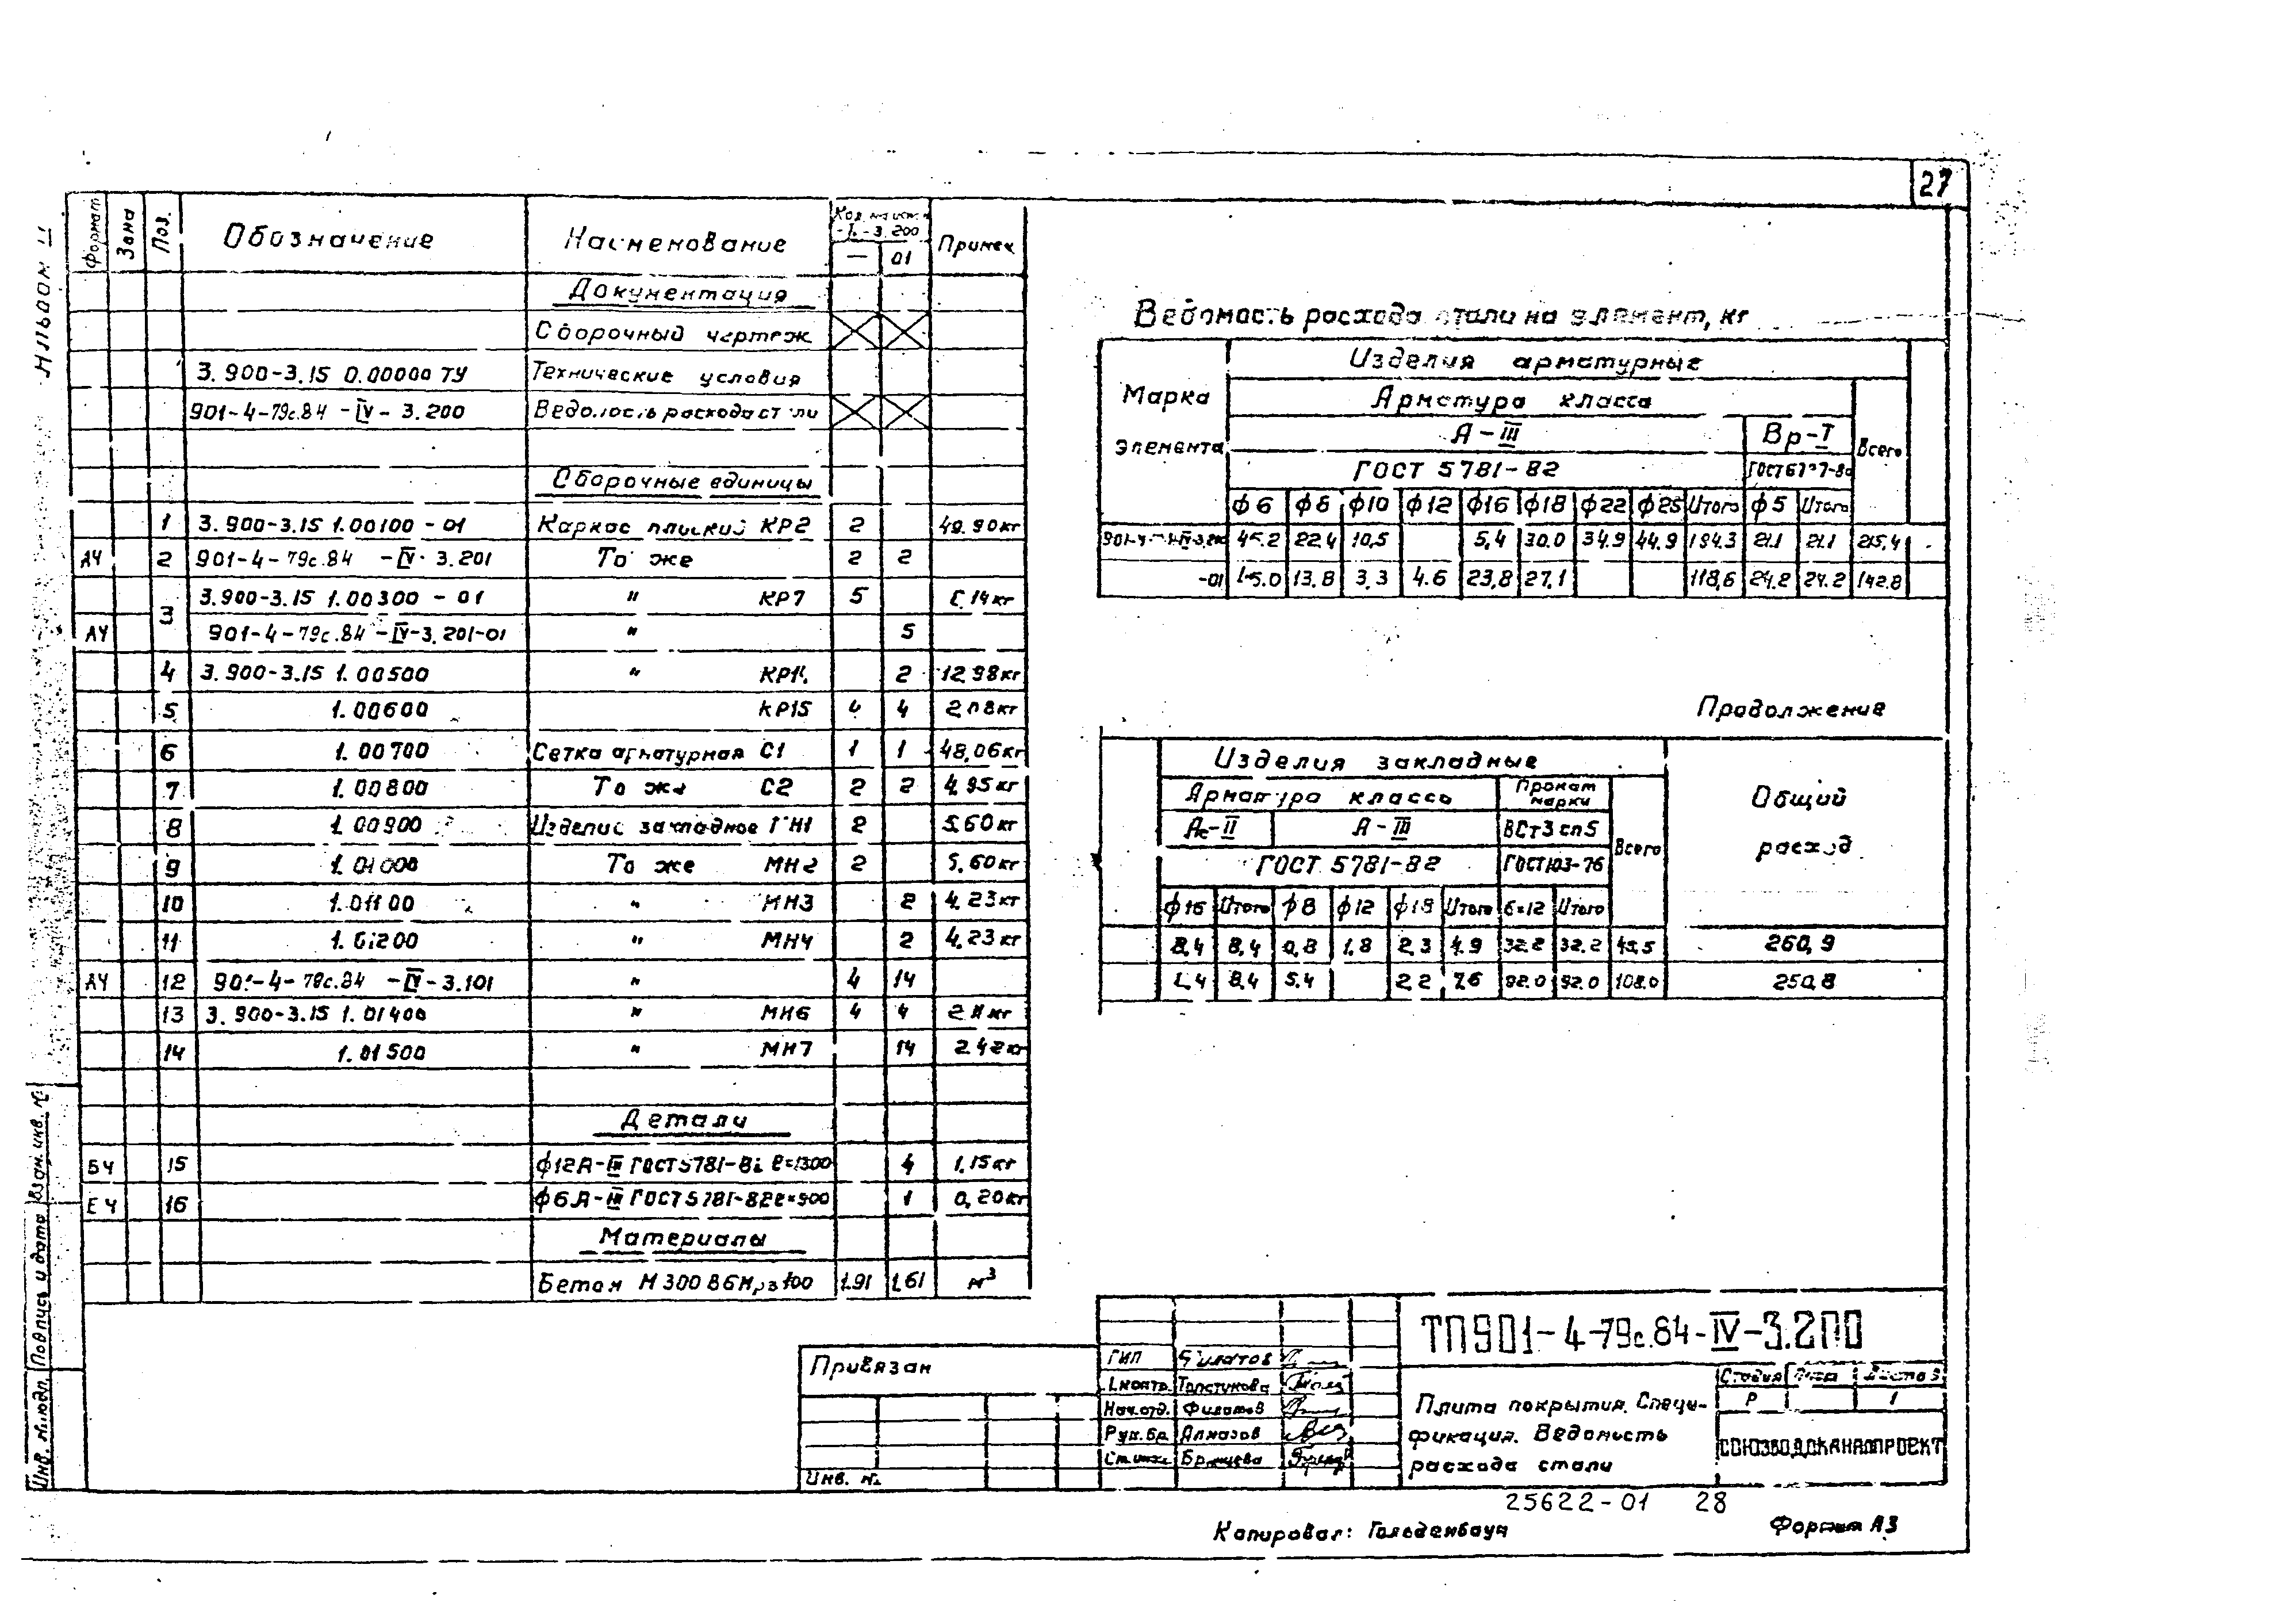 27
Альбом II
Формат Зона Поз. Обозначение Наименование Кол. на исп. -IV-3.200 Примеч
— 01
Документация
Сборочный чертеж
3.900-3.15 0.00000 ТУ Технические условия
901-4-79с.84 -IV- 3.200 Ведомость расхода стали
Сборочные единицы
1 3.900-3.15 1.00100 - 01 Каркас плоский КР2 2 49.90кг
АЧ 2 901-4-79с.84 -IV- 3.201 То же 2 2
3 3.900-3.15 1.00300 - 01 " КР7 5 14кг
АЧ 901-4-79с.84 -IV-3.201-01 " 5
4 3.900-3.15 1.00500 " 2 12.98кг
5 1.00600 КР15 4 4 2.08кг
6 1.00700 Сетка арматурная С1 1 1 48,06кг
7 1.00800 То же С2 2 2 4.95кг
8 1.00900 Изделие закладное МН1 2 5.60кг
9 1.01000 То же МН2 2 5.60кг
10 1.01100 " МН3 2 4.23кг
11 1.01200 " МН4 2 4,23кг
АЧ 12 901-4-79с.84 -IV-3.101 " 4 14
13 3.900-3.15 1.01400 " МН6 4 4 кг
14 1.01500 " МН7 14 2.42кг
Детали
БЧ 15 ф12А-III ГОСТ5781-82 ℓ=1300 4 1.15кг
БЧ 16 ф6А-III ГОСТ5781-82 ℓ=900 1 0,20кг
Материалы
Бетон М300 В6 Мрз100 1.91 1,61 м³
Ведомость расхода стали на элемент, кг
Марка элемента Изделия арматурные
Арматура класса Всего
А-III Вр-I
ГОСТ 5781-82 ГОСТ6727-80
ф6 ф8 ф10 ф12 ф16 ф18 ф22 ф25 Итого ф5 Итого
45.2 22.4 10,5 5,4 30.0 34.9 44.9 194.3 21.1 21.1 215,4
-01 45.0 13.8 3,3 4.6 23,8 27,1 118,6 24.2 24.2 142.8
Продолжение
Изделия закладные Общий расход
Арматура класса Прокат марки Всего
Ас-II А-III ВСт3сп5
ГОСТ 5781-82 ГОСТ103-76
ф16 Итого ф8 ф12 ф18 Итого 6×12 Итого
8,4 8,4 0,8 1,8 2,3 4.9 32.2 32.2 45,5 260,9
8,4 5.4 2,2 7,6 92.0 92.0 108.0 250,8
ТП901-4-79с.84-IV-3.200
Привязан
Инв. №
ГИП Филатов
Н.контр. Толстикова
Нач.отд. Филатов
Рук.бр Алмазов
Ст.инж.
Плита покрытия. Специ-
фикация. Ведомость
расхода стали
Стадия Лист Листов
Р 1
СОЮЗВОДОКАНАЛПРОЕКТ
25622-01 28
Копировал: Гольденбаум
Формат А3
Инв. № подл. Подпись и дата Взам. инв. №